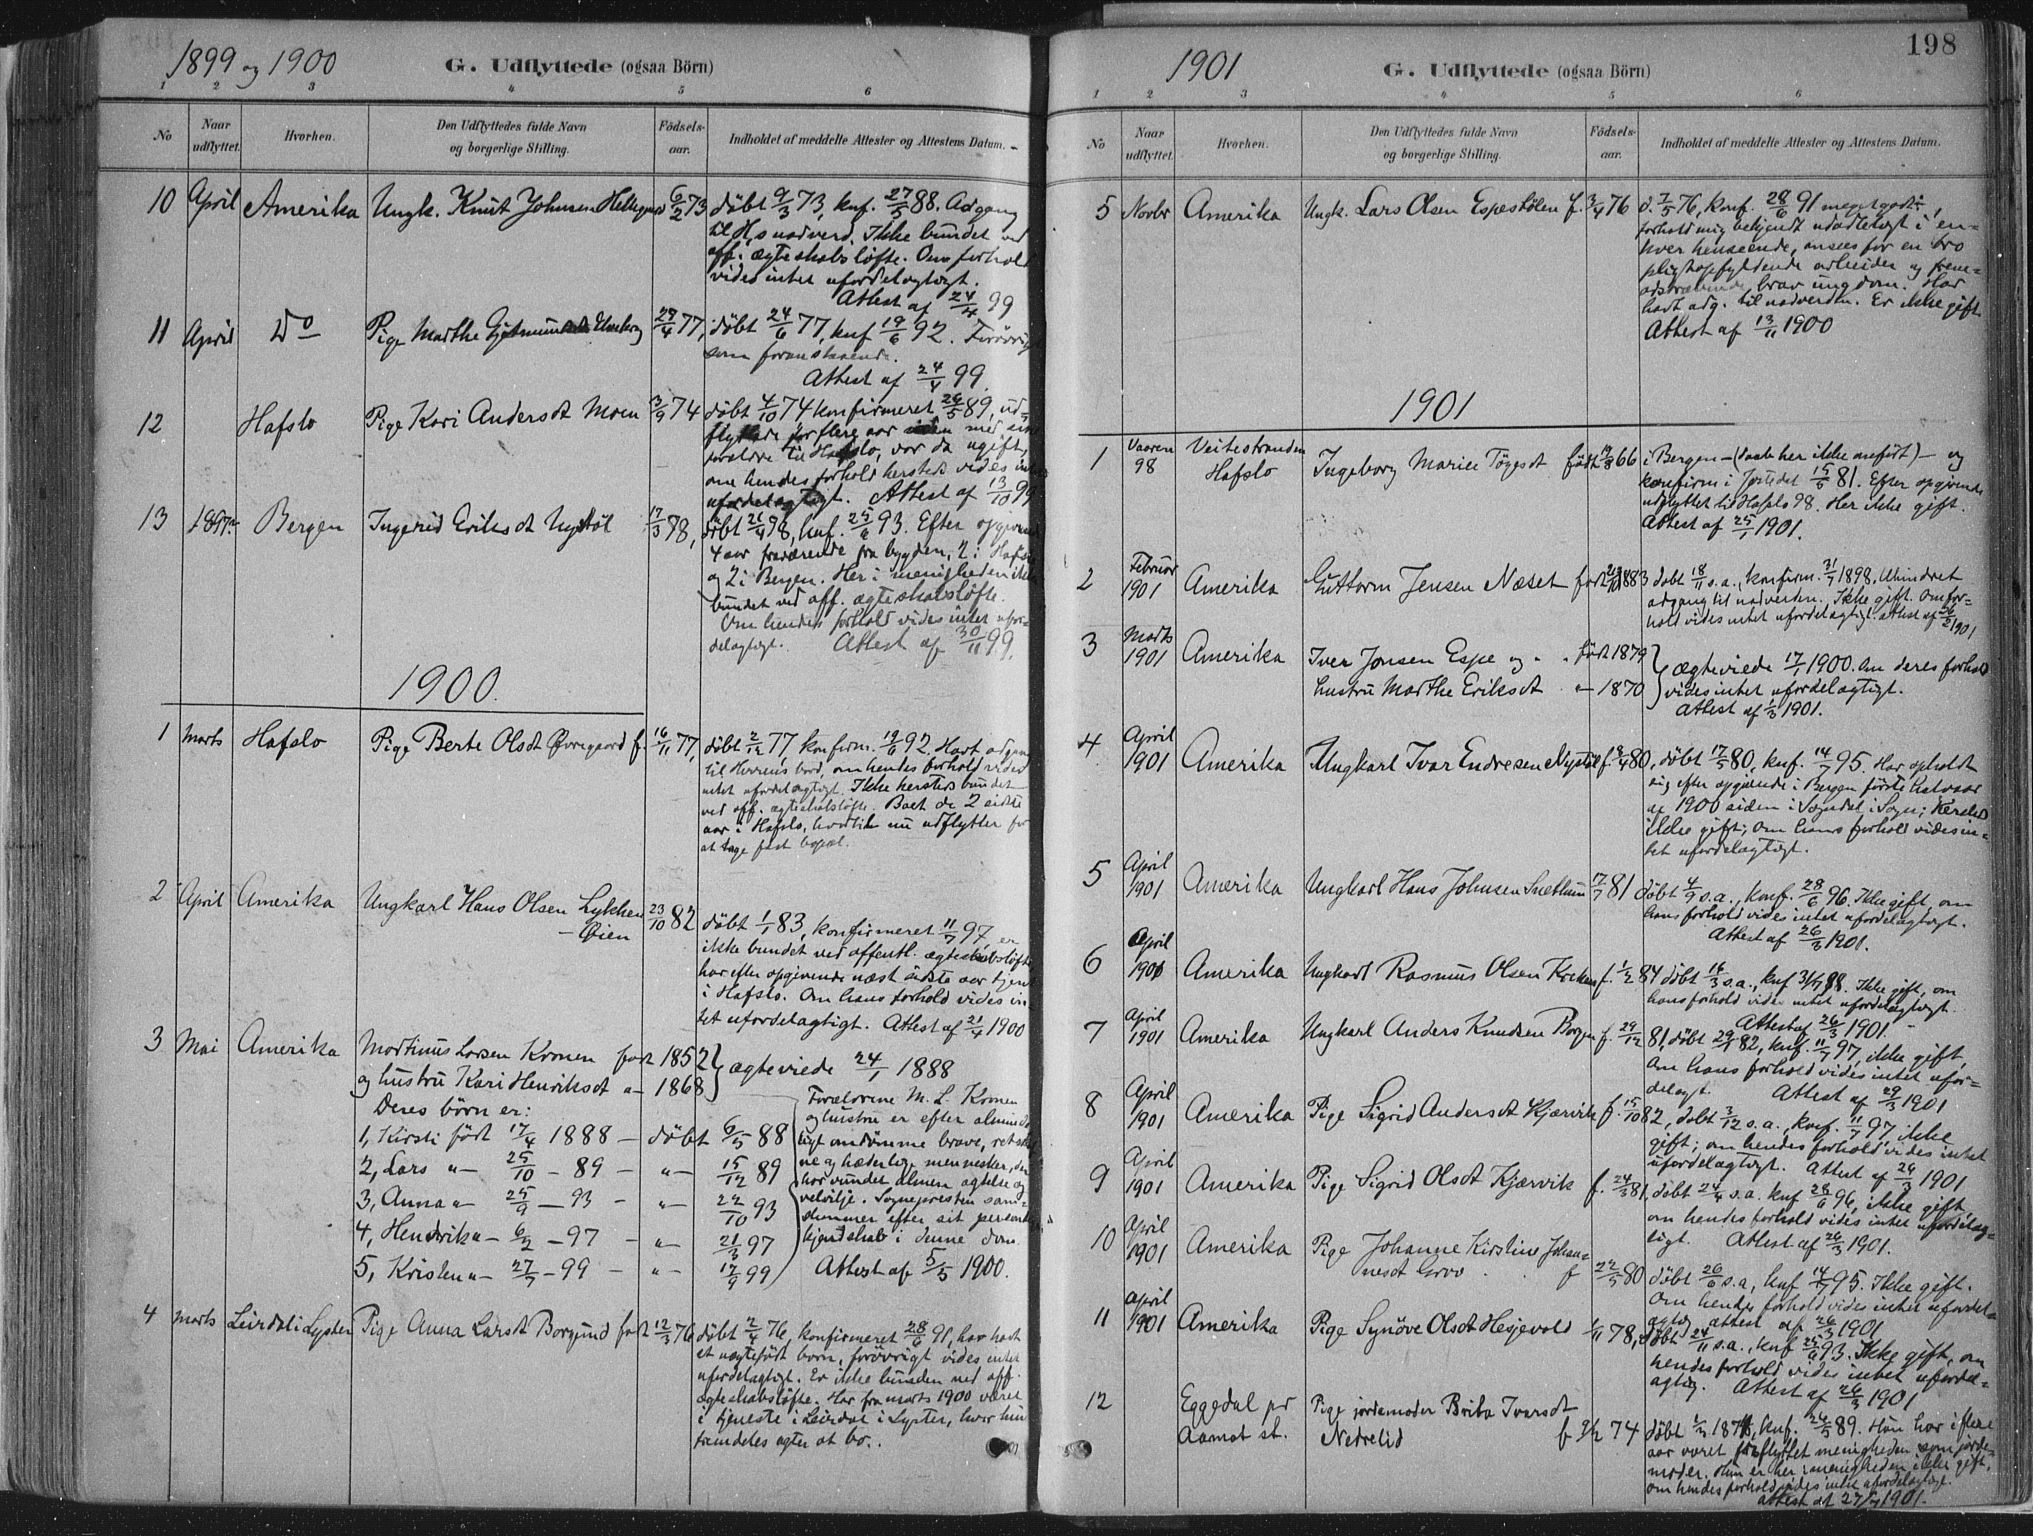 1899 og 1900
G. Udflyttede (ogsaa Börn)
1 2 3 4 5 6
No
Naar udflyttet.
Hvorhen.
Den Udflyttedes fulde Navn og borgerlige Stilling.
Födsels-aar.
Indholdet af meddelte Attester og Attestens Datum.
10 April Amerika Ungk. Knut Johnsen 6/2 73 döbt 9/3 73, knf. 27/5 88. Adgang
til H,s nadverd. Ikke bundet ved
off. ægteskabsløfte. Om forhold
vides intet ufordelagtigt.
Attest af 24/4 99
11 April Do Pige Marthe 29/4 77, döbt 24/6 77, knf 19/6 92. Forøvrigt
som foranstaaende.
Attest af 24/4 99.
12 Hafslo Pige Kari Andersdt Moen 3/9 74 döbt 4/10 74 konfirmeret 26/5 89, ud-
flyttede for flere aar siden med sine
forældre til Hafslo, var da ugift,
om hendes forhold hersteds vides intet
ufordelagtigt. Attest af 13/10 99
13 1897 Bergen Ingerid Eriksdt Nystöl 17/3 78, döbt 26/4 78, knf. 25/6 93. Efter opgivende
4 aar fraværende fra bygden, 2 i Hafslo
og 2 i Bergen. Her i menigheden ikke
bundet ved off. ægteskabsløfte.
Om hendes forhold vides intet ufor-
delagtigt. Attest af 30/11 99.
1900.
1 Marts Hafslo Pige Berte Olsdt Øvregaard f. 16/11 77, döbt 2/12 77 konfirm. 19/6 92. Havt adgang
til Herrens bord, om hendes forhold vides
intet ufordelagtigt. Ikke hersteds bundet
ved off. ægteskabsløfte. Boet de 2 sidste
aar i Hafslo, hvortil hun nu udflytter for
at tage fast bopæl.
2 April Amerika Ungkarl Hans Olsen Lykken 23/10 82
- Øien
döbt 1/1 83, konfirmeret 11/7 97, er
ikke bundet ved offentl. ægteskabsløfte
har efter opgivende næst sidste aar tjent
i Hafslo. Om hans forhold vides in
tet ufordelagtigt. Attest af 21/4 1900
3 Mai Amerika Martinus Larsen Kronen født 1852
og hustru Kari Henriksdt "- 1868
ægteviede 24/1 1888
Deres börn er:
1, Kirsti født 17/4 1888 - döbt 6/5 88
2, Lars "- 25/10 - 89 - "- 15/12 89
3, Anna "- 25/9 - 93 - "- 22/10 93
4, Hendrik "- 6/2 - 97 - "- 21/3 97
5, Kristen "- 27/7 - 99 - "- 17/9 99
Forældrene M. L. Kronen
og hustru er efter alminde
ligt omdömme brave, retsk
ne og hæderlige mennesker, der
har vundet almen agtelse og
velvilje. Sognepresten sam-
stemmer efter sit personl
kjendskab i denne dom.
Attest af 5/5 1900.
4 Marts Leirdal i Lyster Pige Anna Larsdt Borgund født 12/3 76 döbt 2/4 76, konfirmeret 28/6 91, har havt
et uægtefödt barn, forövrigt vides intet
ufordelagtigt. Er ikke bunden ved off.
ægteskabsløfte. Har fra marts 1900 været
i tjeneste i Leirdal i Lyster, hvor hun
fremdeles agter at bo.
1901
198
G. Udflyttede (ogsaa Börn)
1 2 3 4 5 6
No
Naar udflyttet.
Hvorhen.
Den Udflyttedes fulde Navn og borgerlige Stilling.
Födsels-aar.
Indholdet af meddelte Attester og Attestens Datum.
5 Novbr Amerika Ungk. Lars Olsen Espestölen f. 3/4 76 d. 7/5 76, konf. 28/6 91 meget godt,
forhold mig bekjendt udadlelægt i en-
hver henseende, ansees for en bro
pligtopfyldende arbeider og frem-
adstræbende, brav ungdom. Har
havt adg. til nadverden. Er ikke gift.
Attest af 13/11 1900
1901
1 Vaaren 98 Veitestranden Hafslo Ingeborg Marie Tögesdt födt 19/8 66 i Bergen - (daab her ikke anført) - og
konfirm i Jostedal 15/5 81. Efter opgivende
udflyttet til Hafslo 98. Her ikke gift.
Attest af 25/1 1901.
2 Februar 1901 Amerika Guttorm Jensen Næset födt 1883 döbt 18/11 s.a., konfirm. 31/7 1898. Uhindret
adgang til nadverden. Ikke gift. Om for-
hold vides intet ufordelagtigt. attest af 26/2 1901
3 Marts 1901 Amerika Iver Jonsen Espe og "- födt 1879
hustru Marthe Eriksdt "- 1870
ægteviede 17/7 1900. Om deres forhold
vides intet ufordelagtigt.
Attest af 1/3 1901.
4 April 1901 Amerika Ungkarl Ivar Endresen Nystöl f. 8/4 80, döbt 17/5 80, knf. 14/7 95. Har opholdt
sig efter opgivende i Bergen første halvaar
af 1900 siden i Sogndal i Sogn; Hersteds
ikke gift; om hans forhold vides in-
tet ufordelagtigt.
5 April 1901 Amerika Ungkarl Hans Johnsen Snetthun 17/7 81 döbt 4/9 s.a., konf. 28/6 96. Ikke gift, om
hans forhold vides intet ufordelagtigt.
Attest af 26/3 1901.
6 April 1901 Amerika Ungkarl Rasmus Olsen Kreken f. 1/2 84 döbt 16/3 s.a., knf 31/7 98. Ikke gift, om
hans forhold vides intet ufordelagtigt.
Attest af 26/3 1901.
7 April 1901 Amerika Ungkarl Anders Knudsen Borgen f. 29/12 81, döbt 29/1 82, knf. 11/7 97, ikke gift,
om hans forhold vides intet ufor-
delagt. Attest af 29/3 1901
8 April 1901 Amerika Pige Sigrid Andersdt Kjærvik f. 15/10 82, döbt 3/12 s.a., knf. 11/7 97, ikke
gift; om hendes forhold vides intet
ufordelagtigt. Attest af 26/3 1901
9 April 1901 Amerika Pige Sigrid Olsdt Kjærvik f. 24/3 81, döbt 24/4 s.a. knf 28/6 96, ikke gift,
om hendes forhold vides intet ufordelag-
tigt. Attest af 26/3 1901.
10 April 1901 Amerika Pige Johanne Kirstine Johan-
nesdt Grov f 22/5 80 döbt 26/6 s.a, knf 14/7 95. Ikke gift.
Om hendes forhold vides intet ufordel-
agtig attest af 26/3 1901
11 April 1901 Amerika Pige Synöve Olsdt Hesjevold 1/11 78, döbt 24/11 s.a., knf 25/6 93. Ikke gift, om
hendes forhold vides intet ufordel-
agtig. Attest af 26/3 1901
12 Eggedal pr Aamot st. Pige jordemoder Brita Ivarsdt
Nedrelid f 74 döbt 1/3 1874, knf. 26/5 89. Hun har i flere
aar været fraflyttet menigheden som jorde-
moder. Hun er her i menigheden ikke gift,
om hendes forhold vides intet ufordelagtigt.
attest af 1901.